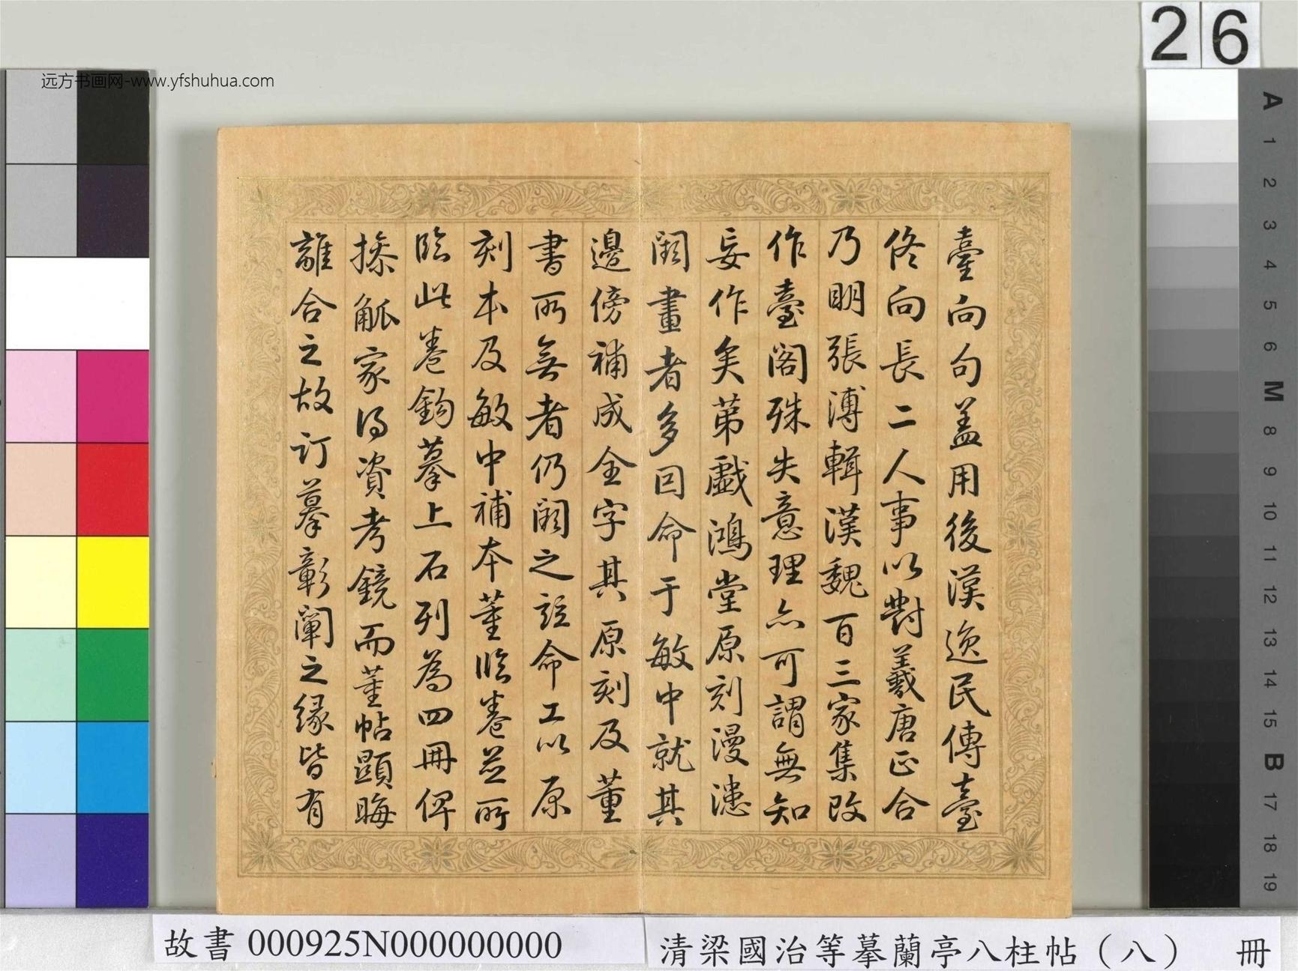 远方书画网-www.yfshuhua.com
26
臺向句盖用後漢逸民傳臺
佟向長二人事以對羲唐正合
乃明張溥輯漢魏百三家集改
作臺閣殊失意理亦可謂無知
妄作矣第戲鴻堂原刻漫漶
闕畫者多回命于敏中就其
邊傍補成全字其原刻及董
書所無者仍闕之復命工以原
刻本及敏中補本董臨卷並所
臨此卷鈎摹上石列為四冊俾
操觚家得資考鏡而董帖顯晦
離合之故訂摹彰闡之緣皆有
A
1
2
3
4
5
6
M
8
9
10
11
12
13
14
15
B
17
18
19
故書 000925N000000000
清梁國治等摹蘭亭八柱帖（八） 冊